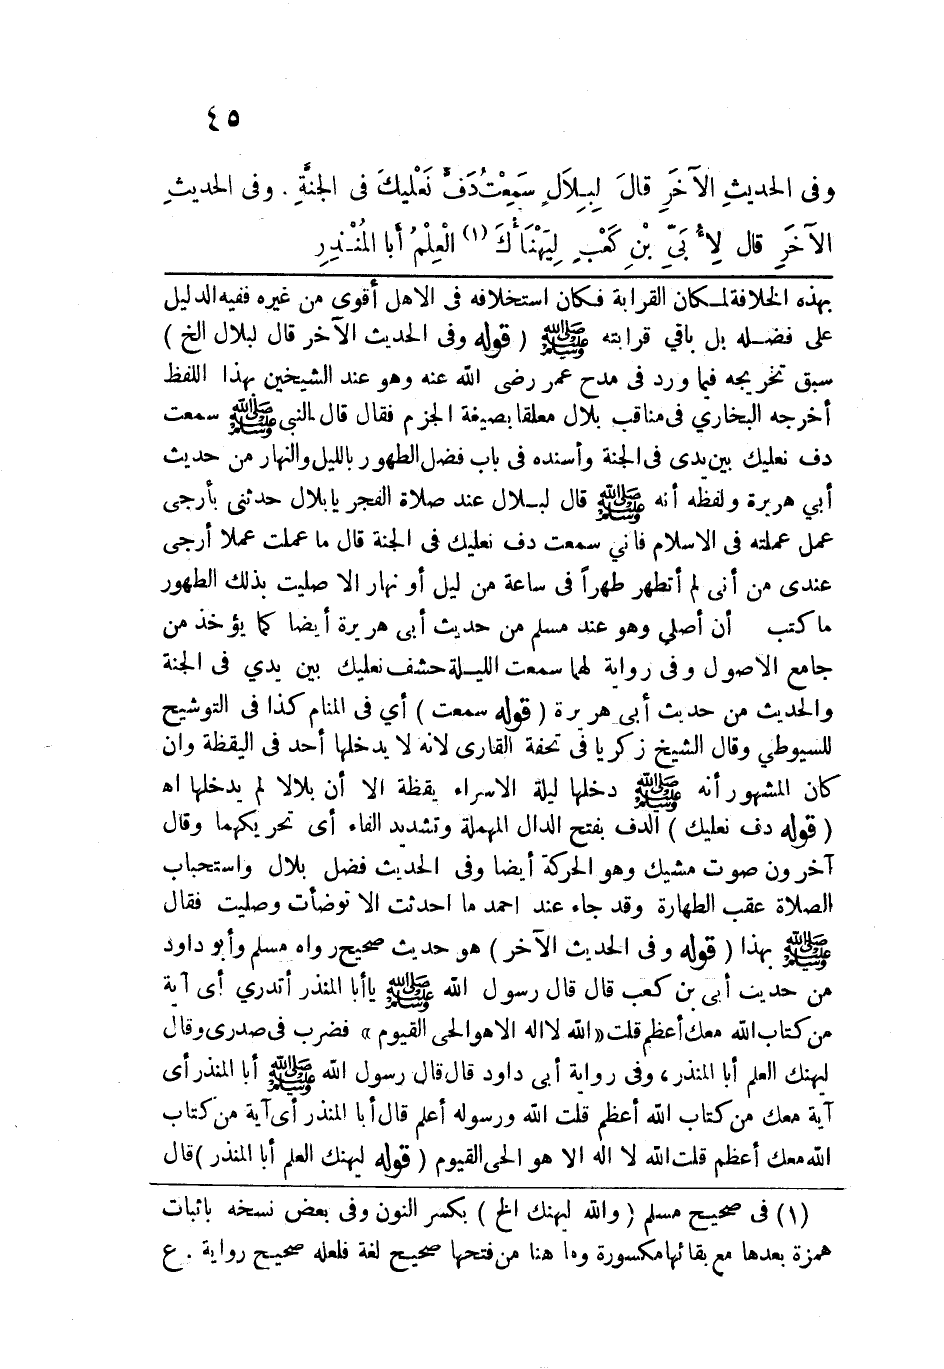 ٤٥
وفى الحديثِ الآخَرِ قالَ لِبِلاَلٍ سَمِعْتُ دَفَّ نَعْلَيكَ فى الجنَّةِ . وفى الحديثِ
الآخَرِ قال لِأُبَيِّ بْنِ كَعْبٍ لِيَهْنَأْكَ (١) الْعِلْمُ أَبا المُنْذِرِ
بهذه الخلافة لمكان القرابة فكان استخلافه فى الاهل أقوى من غيره ففيه الدليل
على فضله بل باقي قرابته ﷺ ( قوله وفى الحديث الآخر قال لبلال الخ )
سبق تخريجه فيما ورد فى مدح عمر رضى الله عنه وهو عند الشيخين بهذا اللفظ
أخرجه البخاري فى مناقب بلال معلقا بصيغة الجزم فقال قال النبى ﷺ سمعت
دف نعليك بين يدى فى الجنة وأسنده فى باب فضل الطهور بالليل والنهار من حديث
أبي هريرة ولفظه أنه ﷺ قال لبلال عند صلاة الفجر يا بلال حدثنى بأرجى
عمل عملته فى الاسلام فاني سمعت دف نعليك فى الجنة قال ما عملت عملا أرجى
عندى من أنى لم أتطهر طهراً فى ساعة من ليل أو نهار الا صليت بذلك الطهور
ما كتب أن أصلي وهو عند مسلم من حديث أبى هريرة أيضا كما يؤخذ من
جامع الاصول وفى رواية لهما سمعت الليلة حشف نعليك بين يدي فى الجنة
والحديث من حديث أبى هريرة ( قوله سمعت ) أي فى المنام كذا فى التوشيح
للسيوطي وقال الشيخ زكريا فى تحفة القارى لانه لا يدخلها أحد فى اليقظة وان
كان المشهور أنه ﷺ دخلها ليلة الاسراء يقظة الا أن بلالا لم يدخلها اه
( قوله دف نعليك ) الدف بفتح الدال المهملة وتشديد الفاء أى تحريكهما وقال
آخرون صوت مشيك وهو الحركة أيضا وفى الحديث فضل بلال واستحباب
الصلاة عقب الطهارة وقد جاء عند احمد ما احدثت الا توضأت وصليت فقال
ﷺ بهذا ( قوله وفى الحديث الآخر ) هو حديث صحيح رواه مسلم وأبو داود
من حديث أبى بن كعب قال قال رسول الله ﷺ يا أبا المنذر أتدري أى آية
من كتاب الله معك أعظم قلت «الله لا اله الا هو الحى القيوم» فضرب فى صدرى وقال
ليهنك العلم أبا المنذر، وفى رواية أبى داود قال قال رسول الله ﷺ أبا المنذر أى
آية معك من كتاب الله أعظم قلت الله ورسوله أعلم قال أبا المنذر أى آية من كتاب
الله معك أعظم قلت الله لا اله الا هو الحى القيوم ( قوله ليهنك العلم أبا المنذر ) قال
(١) فى صحيح مسلم ( والله ليهنك الخ ) بكسر النون وفى بعض نسخه باثبات
همزة بعدها مع بقائها مكسورة وما هنا من فتحها صحيح لغة فلعله صحيح رواية . ع